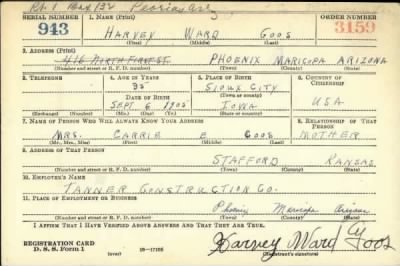 Rt. 1 Box 132 Peoria Ariz
SERIAL NUMBER 1. NAME (Print) ORDER NUMBER
943 HARVEY WARD GOOS 3159
(First) (Middle) (Last)
2. ADDRESS (Print)
416 NORTH FIRST ST. PHOENIX MARICOPA ARIZONA
(Number and street or R. F. D. number) (Town) (County) (State)
3. TELEPHONE 4. AGE IN YEARS 5. PLACE OF BIRTH 6. COUNTRY OF CITIZENSHIP
35 SIOUX CITY
DATE OF BIRTH (Town or county)
SEPT 6 1905 IOWA USA
(Exchange) (Number) (Mo.) (Day) (Yr.) (State or country)
7. NAME OF PERSON WHO WILL ALWAYS KNOW YOUR ADDRESS 8. RELATIONSHIP OF THAT PERSON
MRS. CARRIE E GOOS MOTHER
(Mr., Mrs., Miss) (First) (Middle) (Last)
9. ADDRESS OF THAT PERSON
STAFFORD KANSAS
(Number and street or R. F. D. number) (Town) (County) (State)
10. EMPLOYER'S NAME
TANNER CONSTRUCTION CO.
11. PLACE OF EMPLOYMENT OR BUSINESS
Phoenix Maricopa Arizona
(Number and street or R. F. D. number) (Town) (County) (State)
I AFFIRM THAT I HAVE VERIFIED ABOVE ANSWERS AND THAT THEY ARE TRUE.
REGISTRATION CARD
D. S. S. Form 1 (over) 16—17105 Harvey Ward Goos
(Registrant's signature)